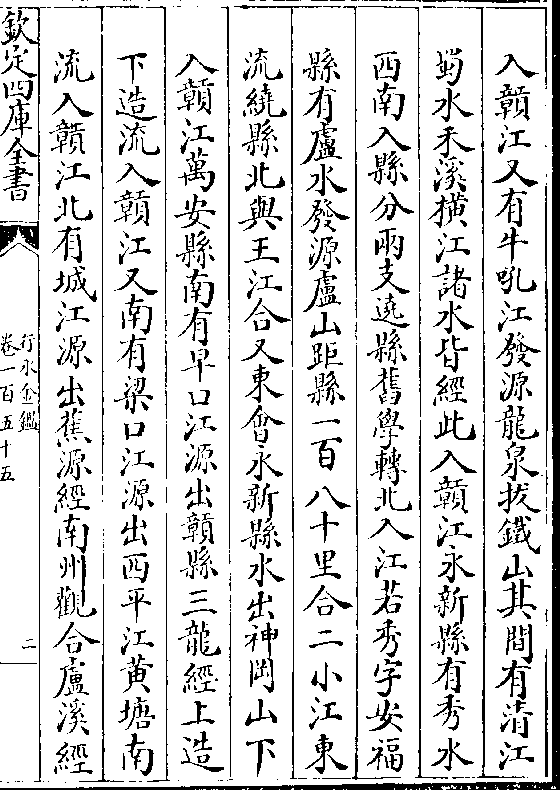 入贛江又有牛吼江發源龍泉拔鐵山其間有清江
蜀水禾溪橫江諸水皆經此入贛江永新縣有秀水
西南入縣分兩支遶縣舊學轉北入江若秀字安福
縣有盧水發源盧山距縣一百八十里合二小江東
流繞縣北與王江合又東會永新縣水出神岡山下
入贛江萬安縣南有早口江源出贛縣三龍經上造
下造流入贛江又南有梁口江源出西平江黃塘南
流入贛江北有城江源出蕉源經南州觀合盧溪經
欽定四庫全書
行水金鑑
卷一百五十五
二